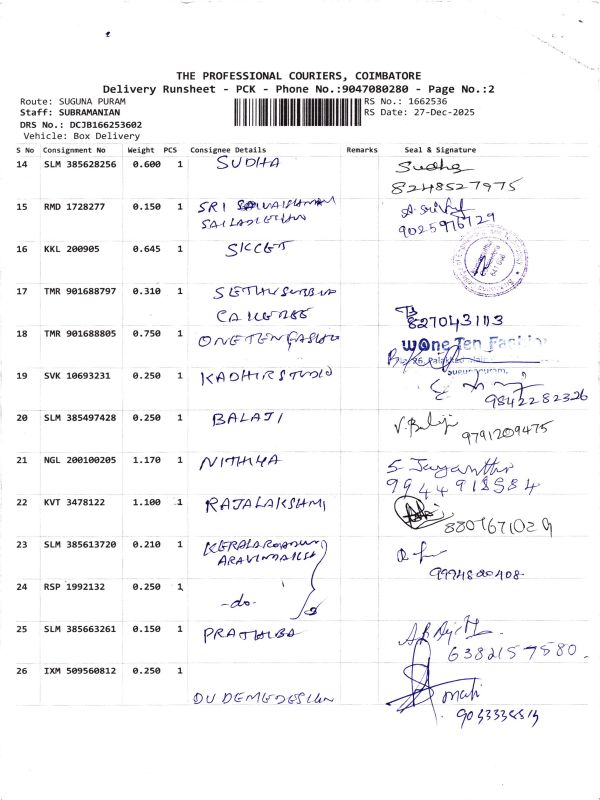 THE PROFESSIONAL COURIERS, COIMBATORE
Delivery Runsheet - PCK - Phone No.:9047080280 - Page No.:2
Route: SUGUNA PURAM RS No.: 1662536
Staff: SUBRAMANIAN RS Date: 27-Dec-2025
DRS No.: DCJB166253602
Vehicle: Box Delivery
S No Consignment No Weight PCS Consignee Details Remarks Seal & Signature
14 SLM 385628256 0.600 1 SUDHA Sudha
8248527975
15 RMD 1728277 0.150 1 SRI
9025976129
16 KKL 200905 0.645 1 SKCET
17 TMR 901688797 0.310 1
827043113
18 TMR 901688805 0.750 1 ONETENFASHIO One Ten Fashion
19 SVK 10693231 0.250 1 KADHIRSTUDIO
9842282326
20 SLM 385497428 0.250 1 BALAJI V. Balaji 9791209475
21 NGL 200100205 1.170 1 NITHIYA S. Jayanthi
9944918584
22 KVT 3478122 1.100 1 RAJALAKSHMI
8807671029
23 SLM 385613720 0.210 1
9994820408
24 RSP 1992132 0.250 1 -do-
25 SLM 385663261 0.150 1 PRATHIBA
6382157580
26 IXM 509560812 0.250 1
DUDEMEDESIGN